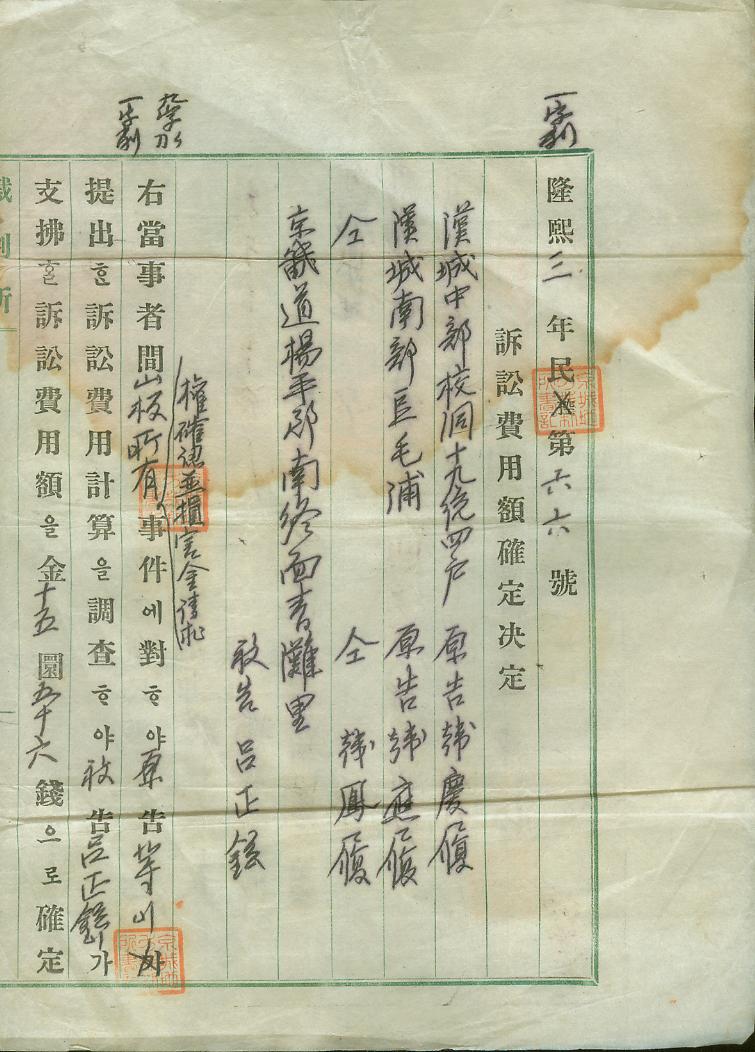 一字刪
隆熙三年民第六六號
訴訟費用額確定決定
漢城中部校洞十九統四戶 原告 韓慶履
漢城南部豆毛浦 原告 韓應履
仝 仝 韓鳳履
京畿道楊平郡南終面靑灘里
被告 呂正鎰
權確認並損害金請求
右當事者間山板所有事件에對ᄒᆞ야原告等이
一字刪
提出ᄒᆞᆫ訴訟費用計算을調査ᄒᆞ야被告呂正鎰가
支拂ᄒᆞᆯ訴訟費用額을金十五圜五十六錢으로確定
裁判所